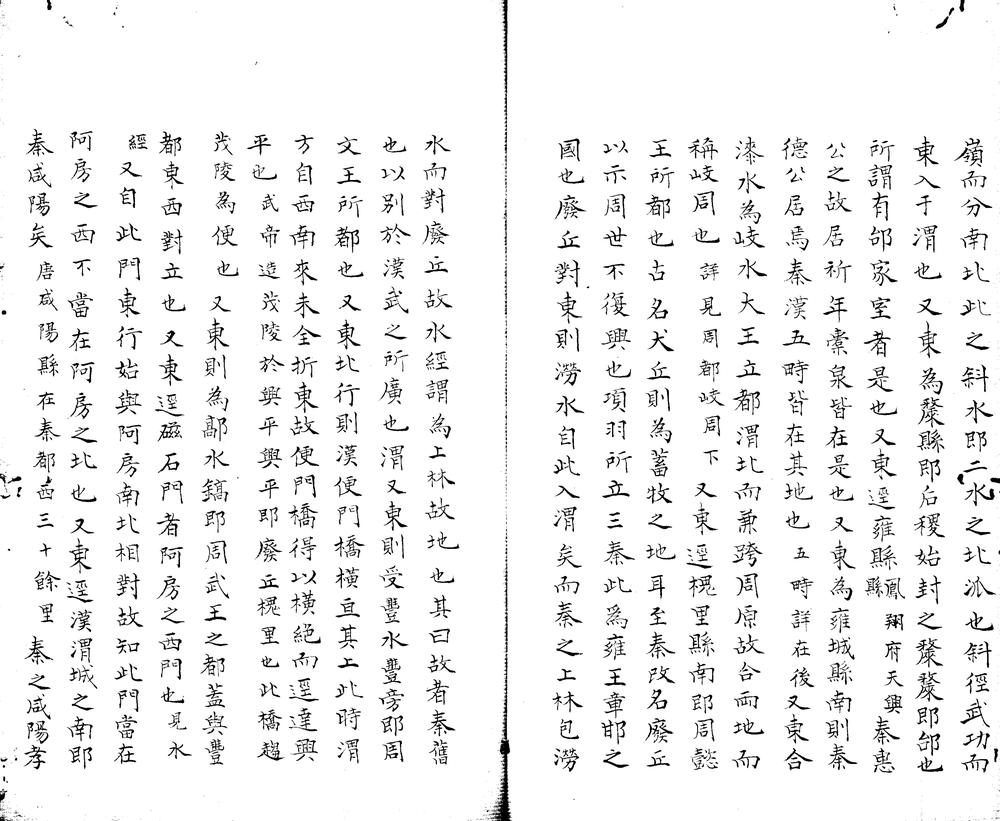 嶺而分南北此之斜水即二水之北派也斜徑武功而
東入于渭也又東為斄縣即后稷始封之斄斄即邰也
所謂有邰家室者是也又東逕雍縣鳳翔府天興縣秦惠
公之故居祈年橐泉皆在是也又東為雍城縣南則秦
德公居焉秦漢五畤皆在其地也五畤詳在後又東合
漆水為岐水大王立都渭北而兼跨周原故合两地而
稱岐周也詳見周都岐周下又東逕槐里縣南即周懿
王所都也古名犬丘則為蓄牧之地耳至秦改名廢丘
以示周世不復興也項羽所立三秦此為雍王章邯之
國也廢丘對東則澇水自此入渭矣而秦之上林包澇
水而對廢丘故水經謂為上林故地也其曰故者秦舊
也以别於漢武之所廣也渭又東則受豐水豐旁即周
文王所都也又東北行則漢便門橋橫亘其上此時渭
方自西南來未全折東故便門橋得以橫絶而逕達興
平也武帝造茂陵於興平興平即廢丘槐里也此橋趨
茂陵為便也又東則為鄗水鎬即周武王之都蓋與豐
都東西對立也又東逕磁石門者阿房之西門也見水
經又自此門東行始與阿房南北相對故知此門當在
阿房之西不當在阿房之北也又東逕漢渭城之南即
秦咸陽矣唐咸陽縣在秦都西三十餘里秦之咸陽孝